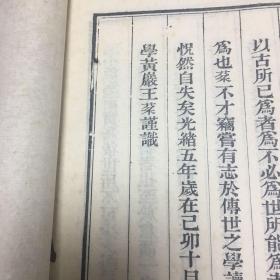 以古所已爲者爲不必爲世所能爲
爲也棻不才竊嘗有志於傳世之學讀
怳然自失矣光緒五年歲在己卯十月
學黃巖王棻謹識